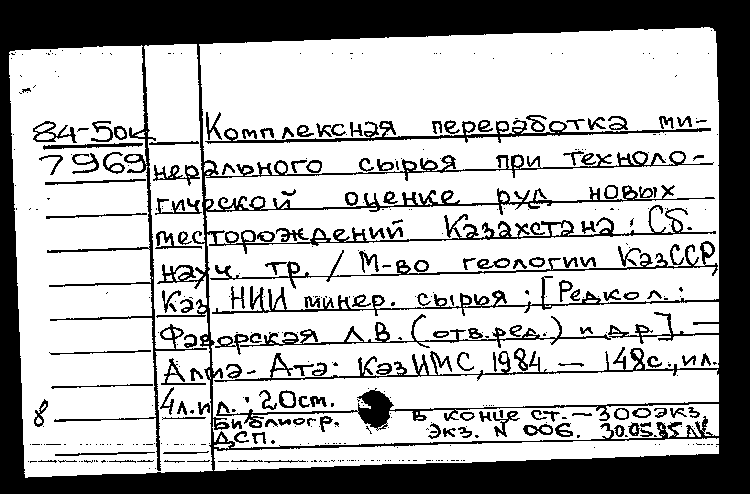 84-5ок Комплексная переработка ми-
7969 нерального сырья при техноло-
гической оценке руд новых
месторождений Казахстана: Сб.
науч. тр. / М-во геологии КазССР,
Каз. НИИ минер. сырья; [Редкол.:
Фаворская Л.В. (отв.ред.) и др.]. —
Алма-Ата: КазИМС, 1984 — 148с., ил.,
8 4л.ил.; 20см.
Библиогр. в конце ст. — 300экз.
ДСП. Экз. N 006. 30.05.85 ЛК